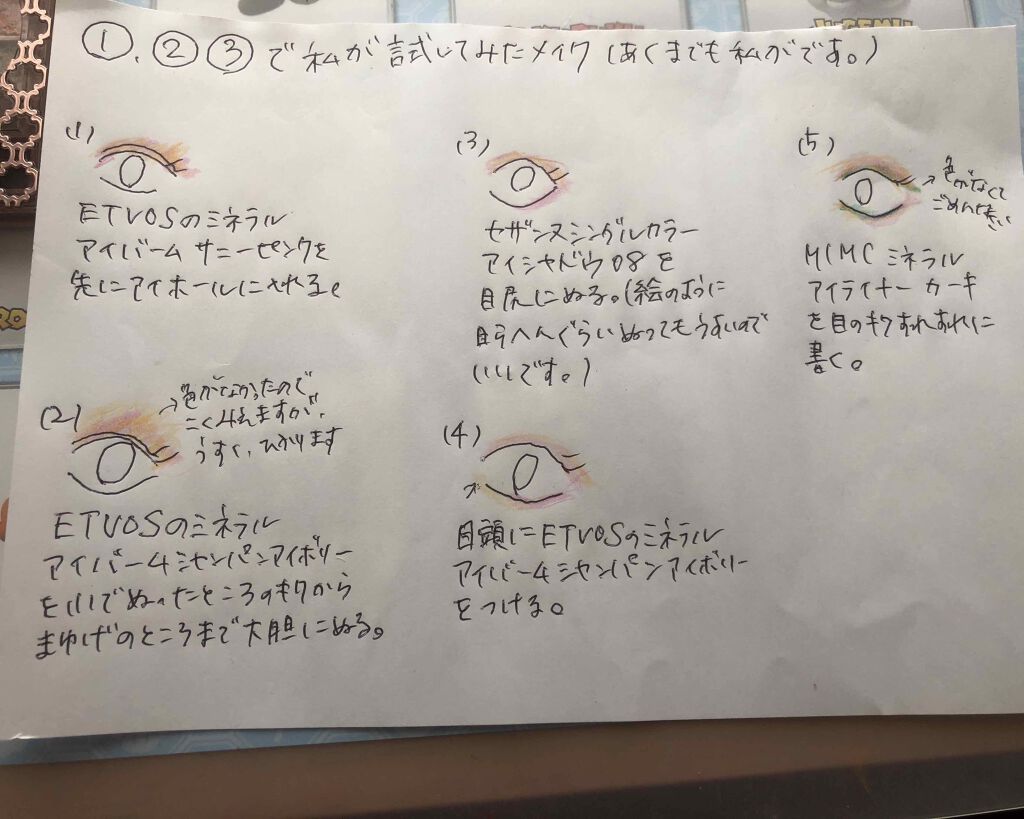 ①.②③で私が試してみたメイク(あくまでも私がです。)
(1)
ETVOSのミネラル
アイバーム サニーピンクを
先にアイホールに入れる。
(2)
→色がなかったので
こくみえますが、
うすく、ひかります
ETVOSのミネラル
アイバームシャンパンアイボリー
を(1)でぬったところのキワから
まゆげのところまで大胆にぬる。
(3)
セザンヌシングルカラー
アイシャドウ08を
目尻にぬる。(絵のように
ぐらいぬってもうすいので
いいです。)
(4)
目頭にETVOSのミネラル
アイバームシャンパンアイボリー
をつける。
(5)
→色がなくて
ごめんなさい
MIMC ミネラル
アイライナー カーキ
を目のキワすれすれに
書く。